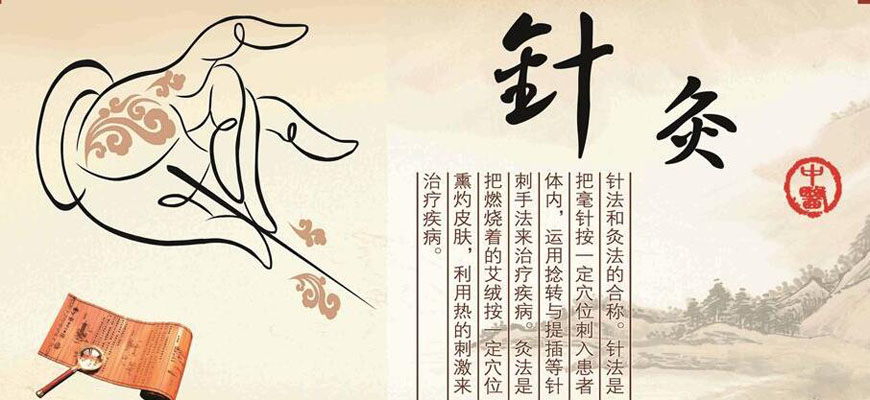 針灸
针法和灸法的合称。针法是
把毫针按一定穴位刺入患者
体内，运用捻转与提插等针
刺手法来治疗疾病。灸法是
把燃烧着的艾绒按一定穴位
熏灼皮肤，利用热的刺激来
治疗疾病。
中醫